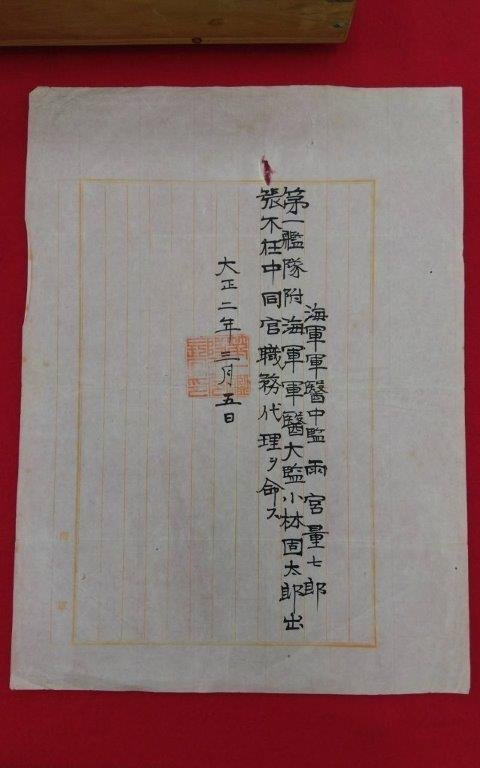 海軍軍醫中監 雨宮量七郎
第一艦隊附海軍軍醫大監小林固太郎出
張不在中同官職務代理ヲ命ス
大正二年三月五日